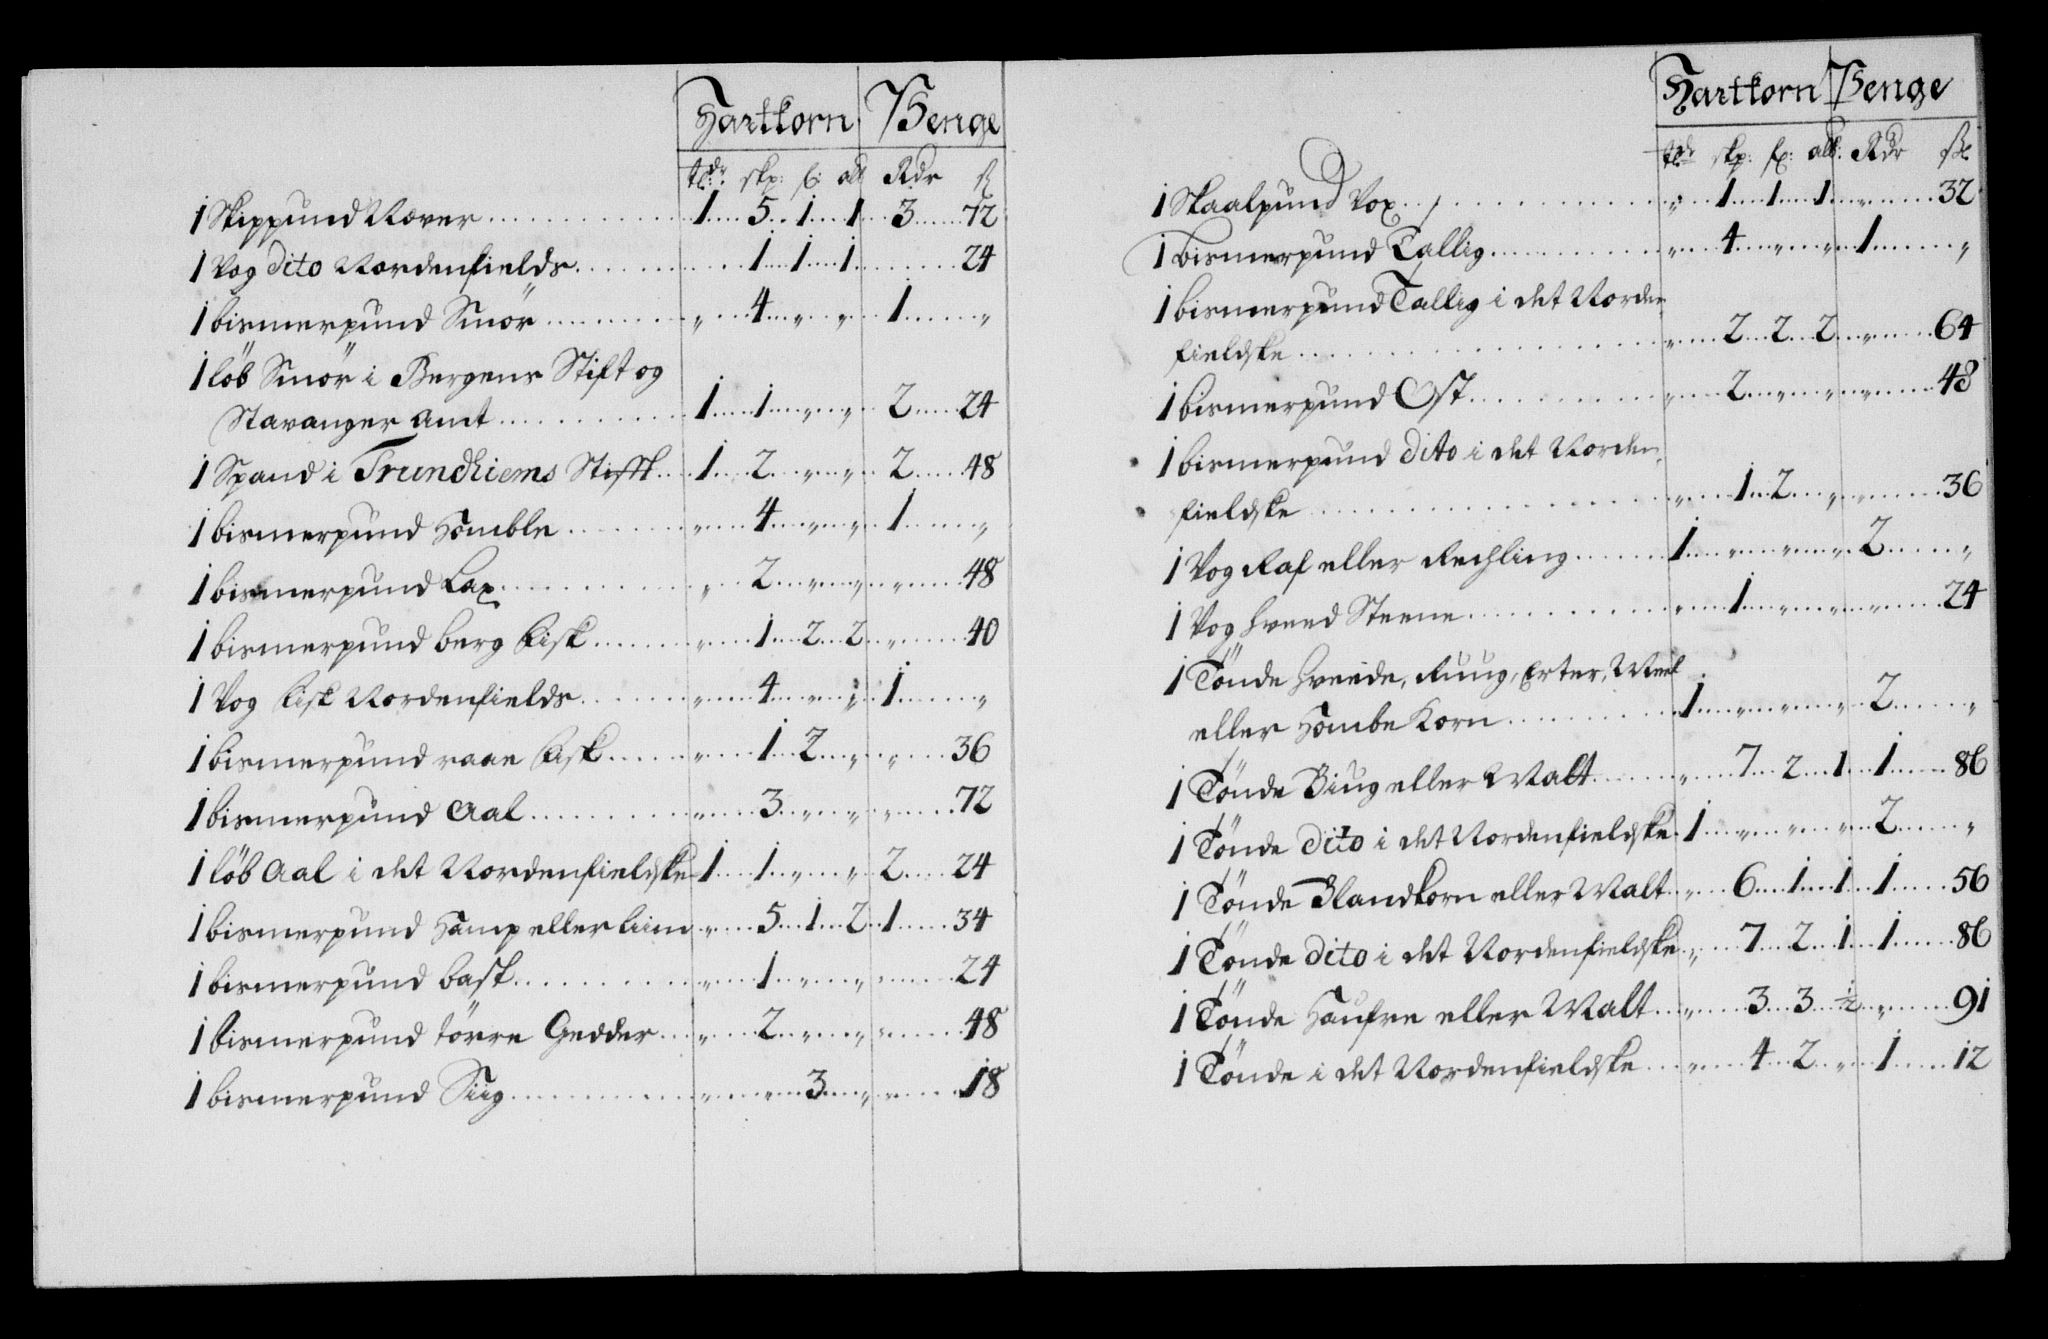 Hartkorn Penge
tdr: skp: f: alb Rdr ß
1 Skippund Næver 1 5 1 1 3 72
1 Vog dito Nordenfields 1 1 1 24
1 bismerpund Smör „ 4 „ „ 1 „
1 löb Smör i Bergens Stift og
Stavanger Amt 1 1 „ „ 2 24
1 Spand i Trundhiems Stifft 1 2 „ „ 2 48
1 bismerpund Homble „ 4 „ „ 1 „
1 bismerpund Lax „ 2 „ „ „ 48
1 bismerpund berg Fisk „ 1 2 2 „ 40
1 Vog Fisk Nordenfields „ 4 „ „ 1 „
1 bismerpund raae Fisk „ 1 2 „ „ 36
1 bismerpund Aal „ 3 „ „ „ 72
1 löb Aal i det Nordenfieldske 1 1 „ „ 2 24
1 bismerpund Hamp eller Liin „ 5 1 2 1 34
1 bismerpund bask „ 1 „ „ „ 24
1 bismerpund törre Gedder „ 2 „ „ „ 48
1 bismerpund Siig „ „ 3 „ „ 18
Hartkorn Penge
tdr skp: f: alb: Rdr ßk
1 Skaalpund Vox „ 1 1 1 „ 32
1 bismerpund Tallig „ 4 „ „ 1 „
1 bismerpund Tallig i det Norden
fieldske „ 2 2 2 „ 64
1 bismerpund Ost „ 2 „ „ „ 48
1 bismerpund dito i det Norden
fieldske „ 1 2 „ „ 36
1 Vog Raf eller Rechling 1 „ „ „ 2 „
1 Vog hveed Steene „ 1 „ „ „ 24
1 Tönde hveede, Ruug, Erter, Meel
eller Hombe Korn 1 „ „ „ 2 „
1 Tönde Biug eller Malt „ 7 2 1 1 86
1 Tönde dito i det Nordenfieldske 1 „ „ „ 2 „
1 Tönde Blandkorn eller Malt „ 6 1 1 1 56
1 Tönde dito i det Nordenfieldske „ 7 2 1 1 86
1 Tönde Haufre eller Malt „ 3 3 ½ „ 91
1 Tönde i det Nordenfieldske „ 4 2 „ 1 12